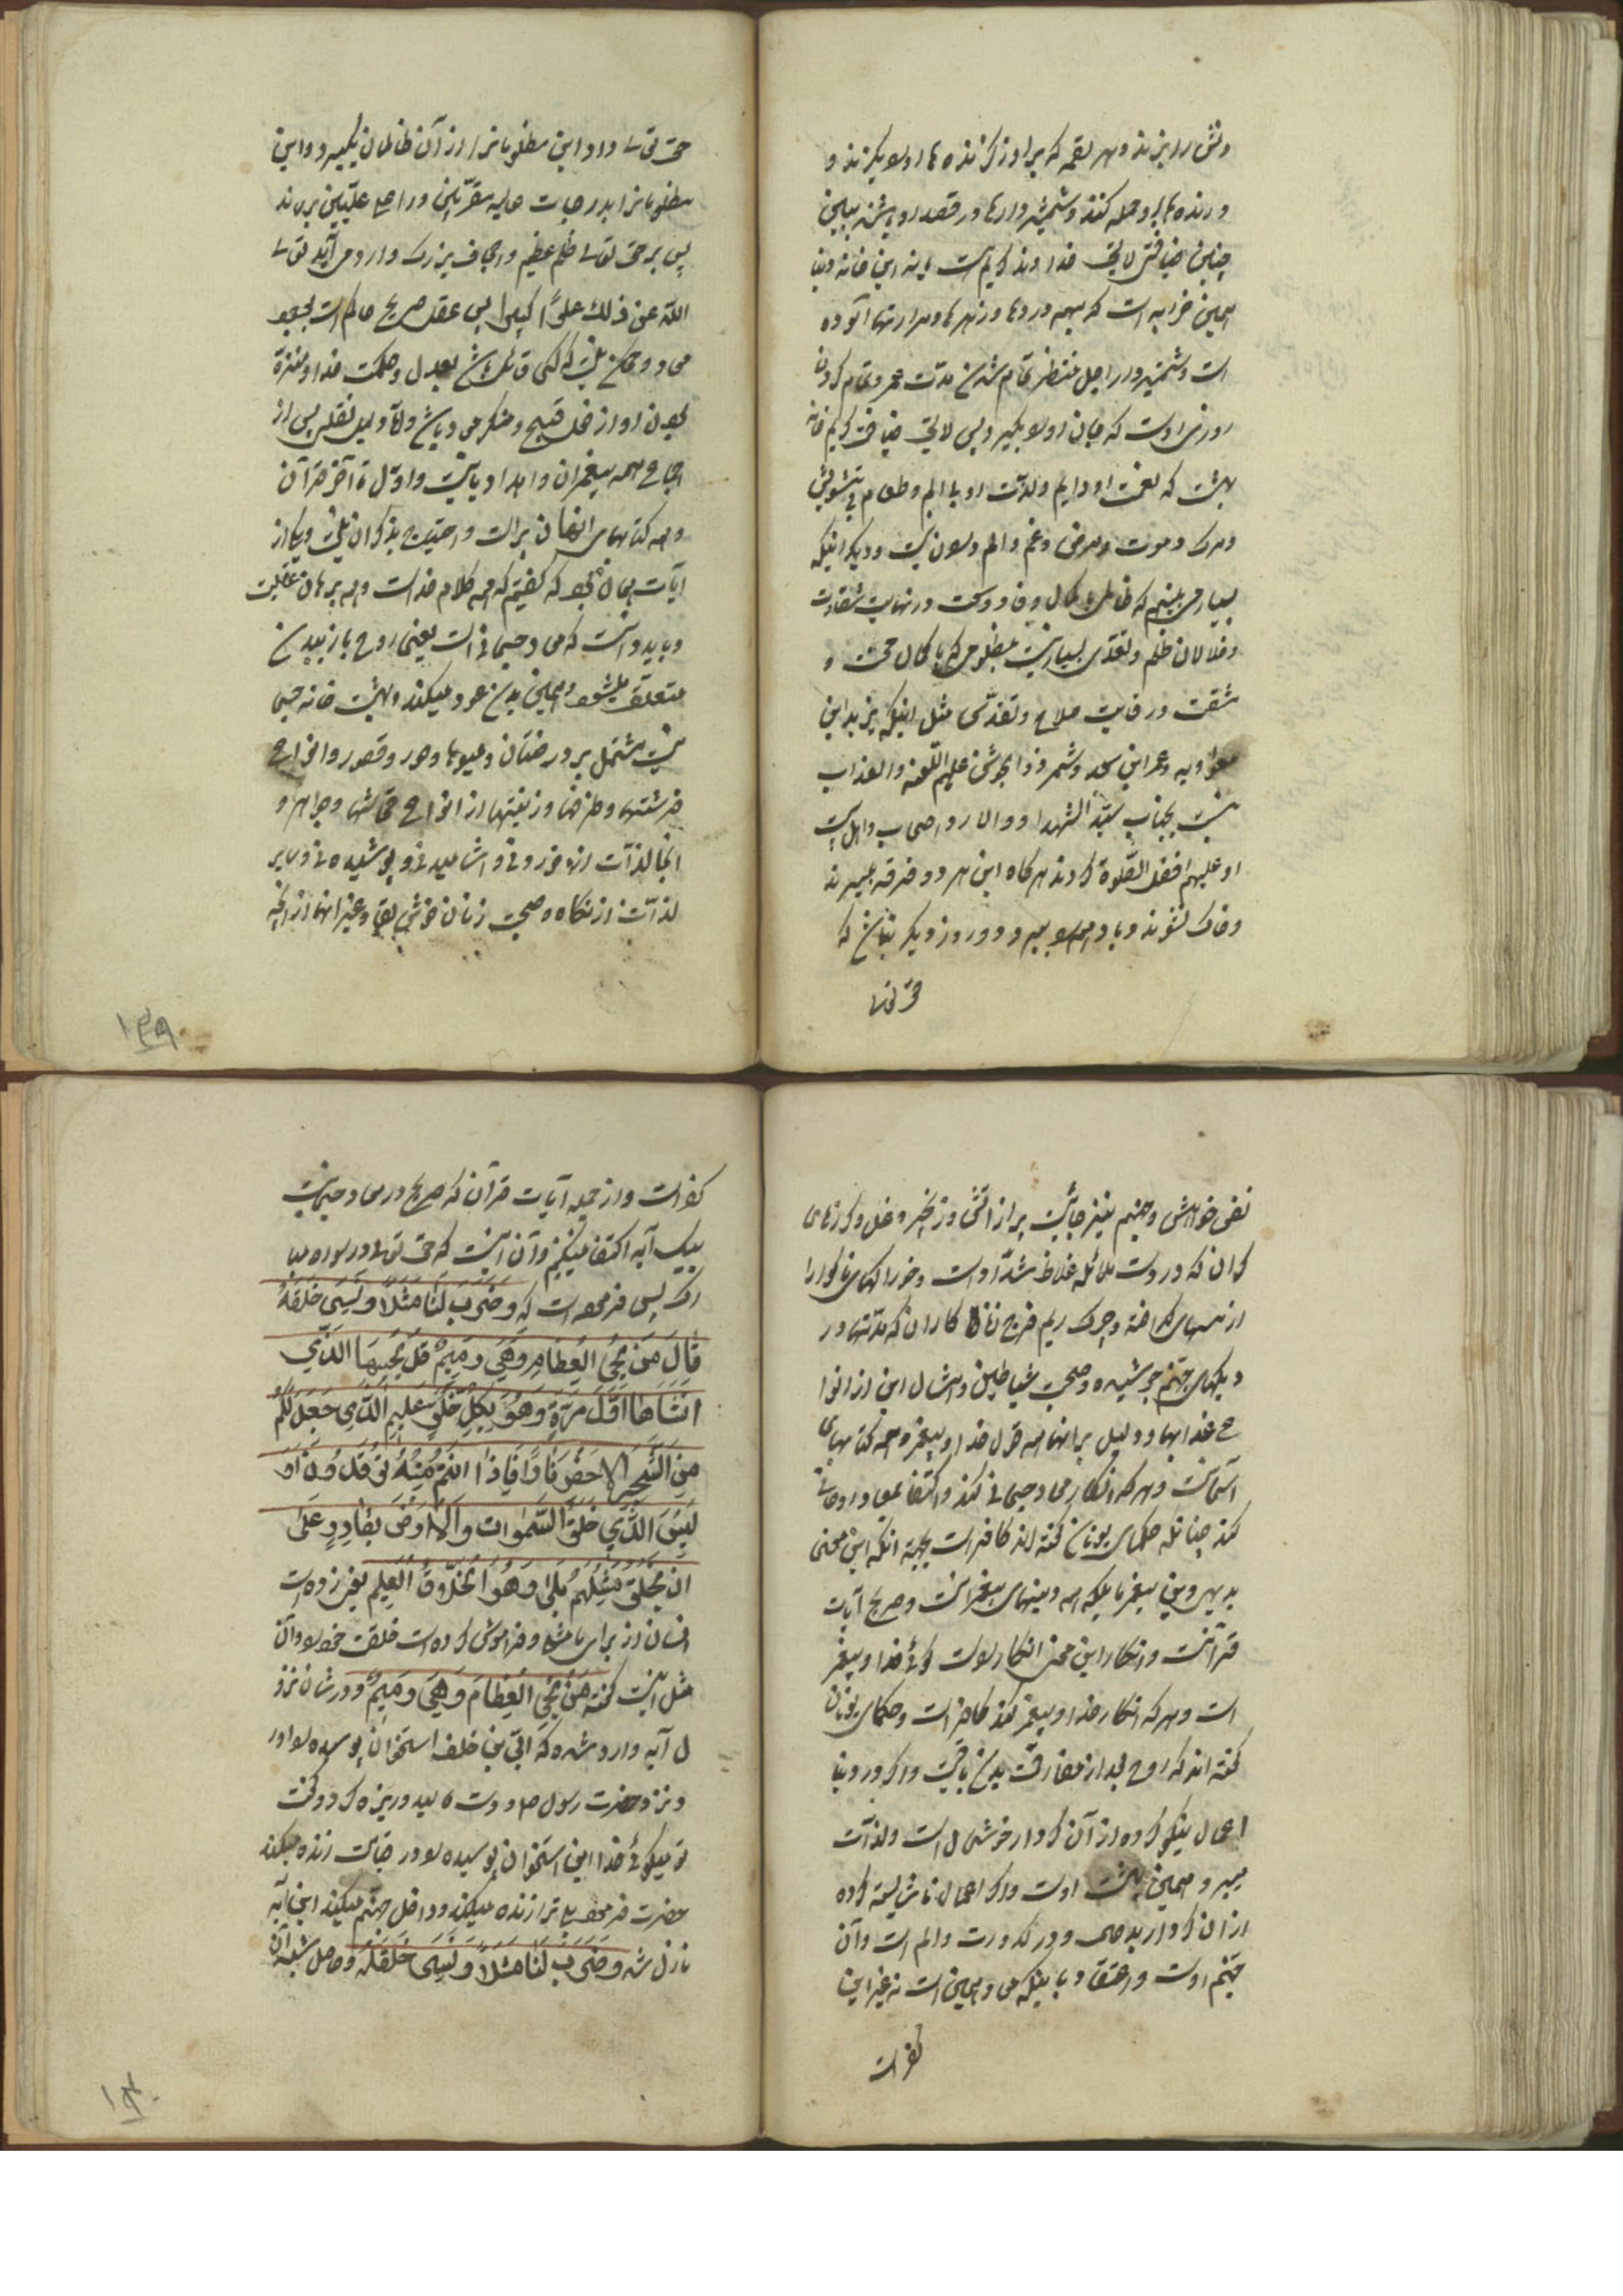 و نیش را بریزند و بهر لقمه که بردارد گزنده‌ها او را بگزند و
درنده‌ها بر او حمله کنند و شمشیردارها در قصد او باشند ببین
چنین ضیافتی لایق خداوند کریم است یا نه این خانه دنیا
همین خرابه است که بهمه دردها و زهرها و مرارتها آلوده
است و شمشیردار اجل منتظر تمام شدن مدت عمر و تمام کردن
روزی اوست که جان او را بگیرد پس لایق ضیافت کریم خانه
بهشت که نعمت او دایم و لذت او بلا الم و طعام بی تشویش
و مرگ و موت و مرض و غم و الم در او نیست و دیگر اینکه
بسیار می بینیم که ظالمی با کمال وفا و وسعت در نهایت شقاوت
و ظالمان ظلم و تعدی بسیار نسبت بمظلومی که با کمال محنت و
مشقت در غایت صلاح و تقدس مثل اینکه یزید ابن
معاویه و عمر ابن سعد و شمر ذی الجوشن علیهم اللعنه والعذاب
نسبت بجناب سید الشهدا و اولاد و اصحاب و اهل بیت
او علیهم افضل الصلوة کردند هرگاه این هر دو فرقه بمیرند
و خاک شوند و باد همه را ببرد و روز دیگر نباشد که
حق تعالی
حق تعالی داد این مظلومانرا از آن ظالمان بگیرد و این
مظلومانرا بدرجات عالیه مقربین و اعلا علیین برساند
پس بر حق تعالی ظلم عظیم و اجحاف بزرگ وارد می آید تعالی
الله عن ذلک علوا کبیرا پس عقل صریح حاکم است بوجود
معاد و ممکن نیست که کسی قائل باشد بعدل و حکمت خدا و منزه
بودن او از فعل قبیح و منکر معاد باشد و اما دلیل نقلی پس از
اجماع همه پیغمبران و امداد یانست و اول تا آخر قرآن
و همه کتابهای آسمانی پر است و احتیاج بذکر آن نیست و یکی از
آیات همان بود که گفتیم که همه کلام خداست و همه برهان عقلیست
و باید دانست که معاد جسمانی است یعنی روح باز ببدن
متعلق میشود و همین بدن عود میکند و بهشت خانه جسمانی
نیست مشتمل بر درختان و میوها و حور و قصور و انواع
فرشتها و ظرفها و زینتها از انواع قماشها و جواهر و
انجا لذات از خوردنی و اشامیدنی و پوشیدنی و سایر
لذات از نکاه و صحبت زنان خوش لقا و غیر انها از انچه
۱۳۹
نفس خواهش و جهنم نیز جائیست پر از آتش و زنجیر و غل و گرزهای
گران که در دست ملائکه غلاظ شداد است و خوراکهای ناگوارا
از مسهای گداخته و چرک و ریم فرج زنا کاران که مدتها در
دیگهای جهنم جوشیده و صحبت شیاطین و امثال این از انوا
ع عذابها و دلیل بر انها همه قول خدا و پیغمبر و همه کتابهای
آسمانیست و هر که انکار معاد جسمانی کند و اکتفا بمعاد روحانی
کند چنانکه حکمای یونان گفته اند کافر است بجهة انکه این معنی
بدیهی دین پیغمبر ما بلکه همه دینهای پیغمبرانست و صریح آیات
قرآنست و انکار این معنی انکار راست گوئی خدا و پیغمبر
است و هر که انکار خدا و پیغمبر کند کافر است و حکمای یونان
گفته اند که روح بعد از مفارقت بدن باقیست و اگر در دنیا
اعمال نیکو کرده از آن کردار خوشحال است و لذات
میبرد و همین بهشت اوست و اگر اعمال ناشایسته کرده
از ان کردار بد همی در کدورت و الم است و آن
جهنم اوست و اعتقاد باینکه معاد همین است نه غیر این
کفر است
کفر است و از جمله آیات قرآن که صریح در معاد جسمانیست
بیک آیه اکتفا میکنیم و آن اینست که حق تعالی در سوره مبا
رکه یس فرموده است که وَضَرَبَ لَنَا مَثَلًا وَنَسِیَ خَلْقَهُ
قَالَ مَنْ یُحْیِ الْعِظَامَ وَهِیَ رَمِیمٌ قُلْ یُحْیِیهَا الَّذِی
اَنْشَاَهَا اَوَّلَ مَرَّةٍ وَهُوَ بِکُلِّ خَلْقٍ عَلِیمٌ الَّذِی جَعَلَ لَکُمْ
مِنَ الشَّجَرِ الْاَخْضَرِ نَارًا فَاِذَا اَنْتُمْ مِنْهُ تُوقِدُونَ اَوَ
لَیْسَ الَّذِی خَلَقَ السَّمٰوَاتِ وَالْاَرْضَ بِقَادِرٍ عَلٰی
اَنْ یَخْلُقَ مِثْلَهُمْ بَلٰی وَهُوَ الْخَلَّاقُ الْعَلِیمُ یعنی زده است
انسان از برای ما مثل و فراموش کرده است خلقت خود را و آن
مثل اینست گفته مَنْ یُحْیِ الْعِظَامَ وَهِیَ رَمِیمٌ و در شان نزو
ل آیه وارد شده که ابی بن خلف استخوان پوسیده را آورد
و نزد حضرت رسول ص و دست مالید و ریزه کرد و گفت
تو میگوئی خدا این استخوان پوسیده را در قیامت زنده میکند
حضرت فرمود بلی ترا زنده میکند و داخل جهنم میکند این آیه
نازل شد وَضَرَبَ لَنَا مَثَلًا وَنَسِیَ خَلْقَهُ و حاصل شبهه آن
۱۴۰